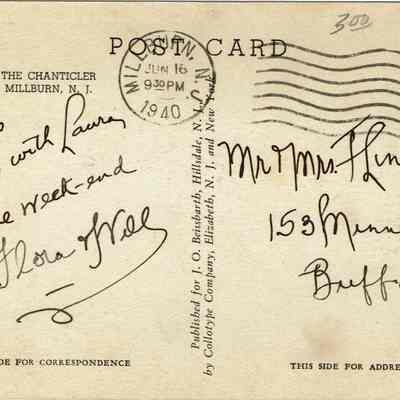 3.00
POST CARD
THE CHANTICLER
MILLBURN, N. J.
MILLBURN, N.J.
JUN 16
9 30 PM
1940
with Laura
week-end
Flora & Will
Published for J. O. Beissbarth, Hillsdale, N. J.
by Collotype Company, Elizabeth, N. J. and New York
Mr & Mrs.
153
Buff
DE FOR CORRESPONDENCE
THIS SIDE FOR ADDRE